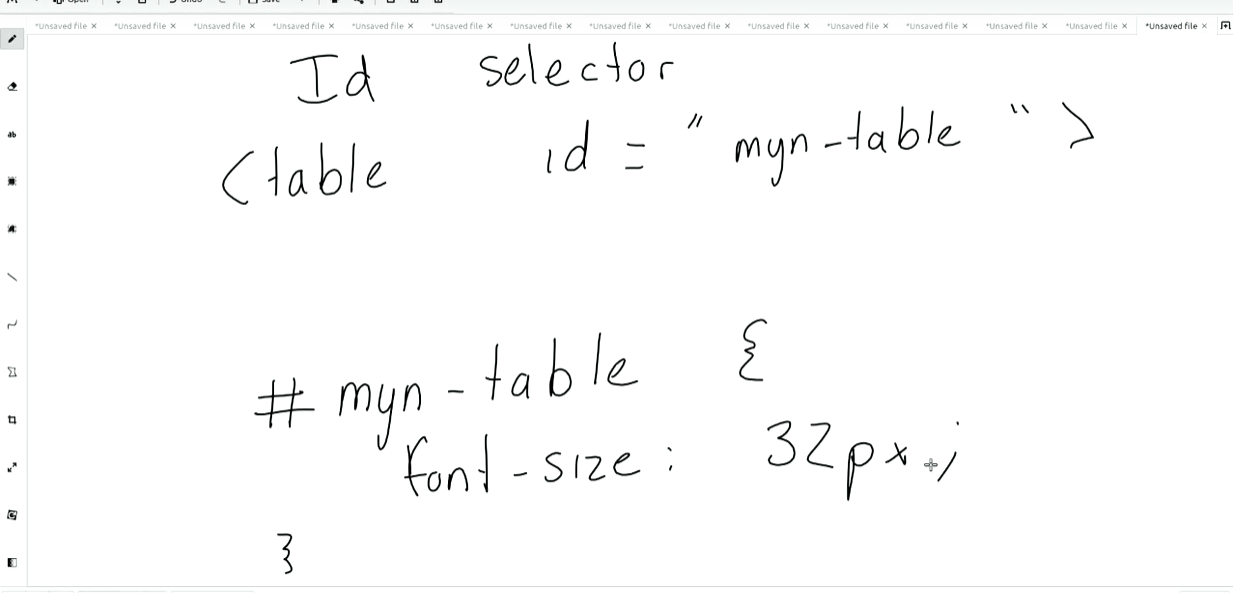 Open Undo Save
*Unsaved file × *Unsaved file × *Unsaved file × *Unsaved file × *Unsaved file × *Unsaved file × *Unsaved file × *Unsaved file × *Unsaved file × *Unsaved file × *Unsaved file × *Unsaved file × *Unsaved file × *Unsaved file × *Unsaved file ×
Id selector
<table id = "myn-table">
#myn-table {
font-size: 32px;
}